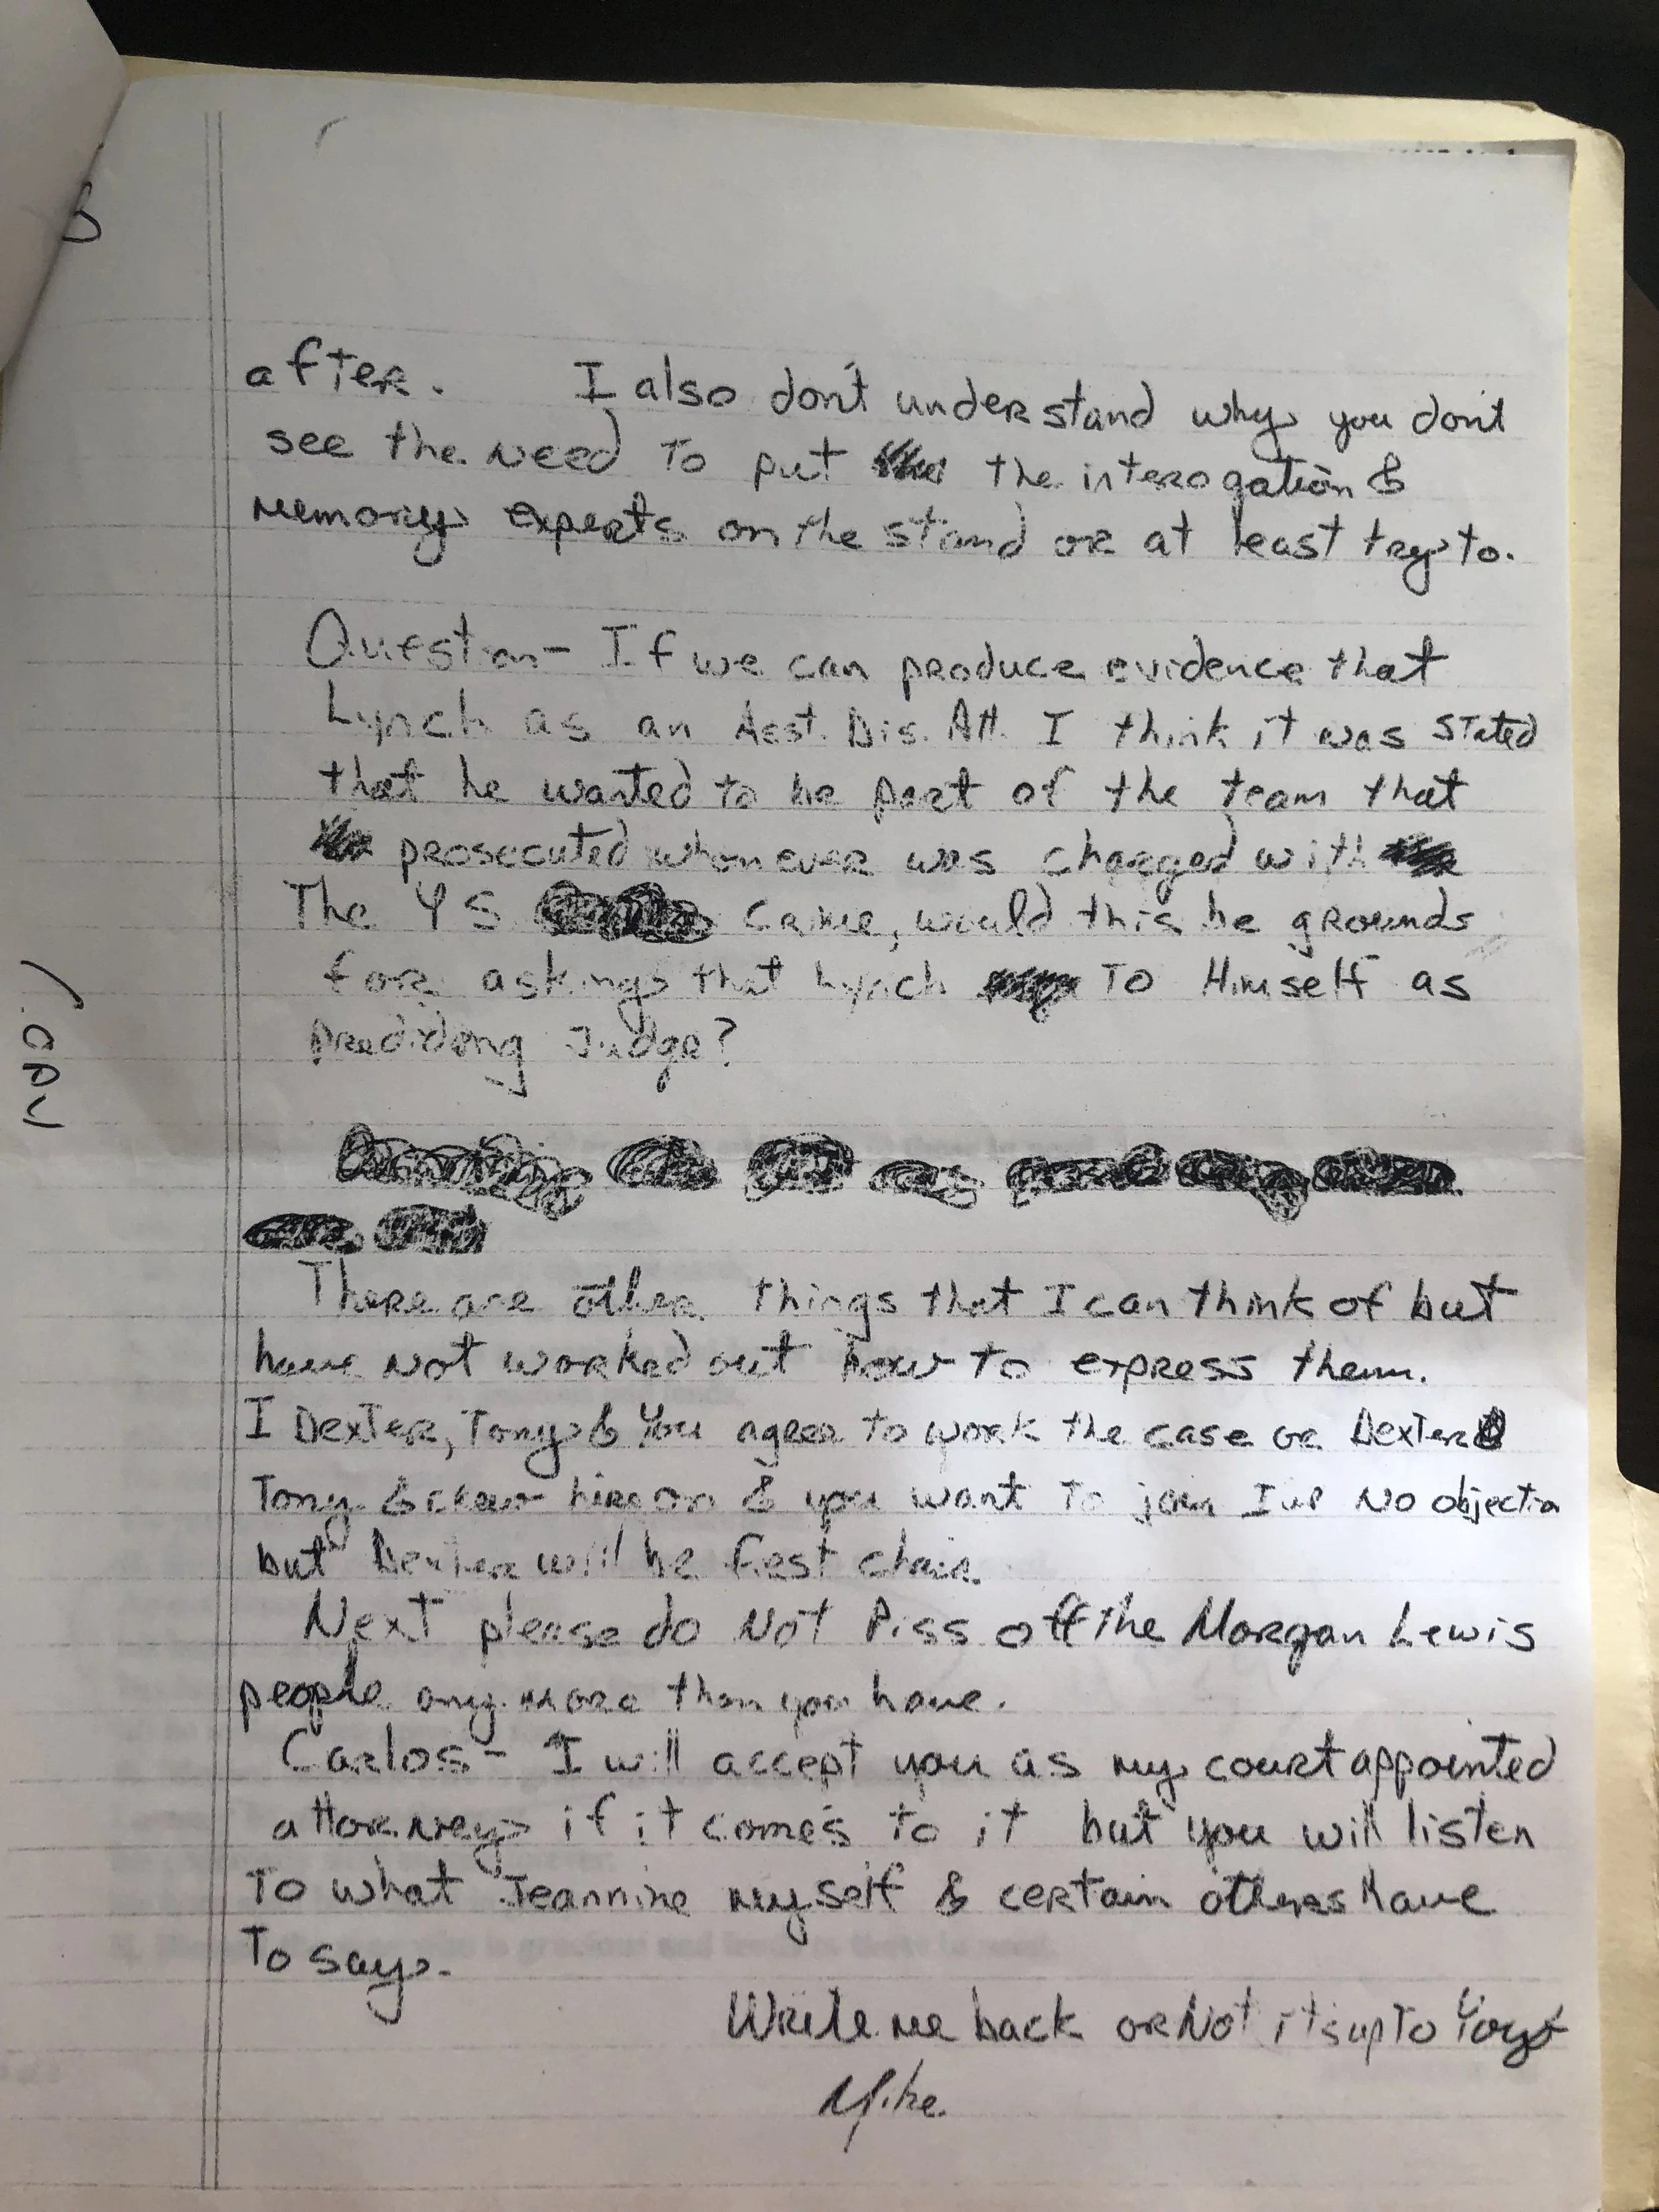 after. I also don't understand why you don't
see the need to put the interogation &
memory experts on the stand or at least try to.
Question - If we can produce evidence that
Lynch as an Asst. Dis. Att. I think it was stated
that he wanted to be part of the team that
prosecuted whomever was charged with
The YS crime, would this be grounds
for asking that Lynch To Himself as
Judge?
There are other things that I can think of but
have not worked out how to express them.
I Dexter, Tony & You agree to work the case or Dexter
Tony & crew hire on & you want to join I've No objection
but Dexter will be first chair.
Next please do Not Piss off the Morgan Lewis
people any more than you have.
Carlos - I will accept you as my court appointed
attorney if it comes to it but you will listen
To what Jeannine myself & certain others have
To say.
Write me back or Not its up To You
Mike